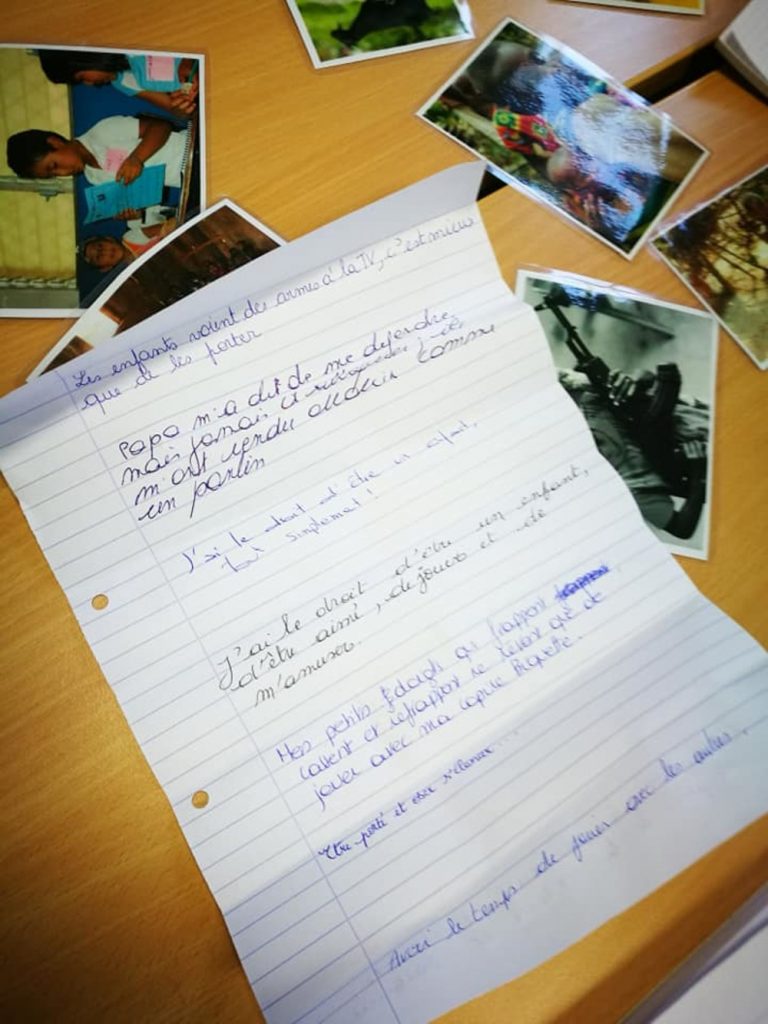 Les enfants voient des armes à la TV, c'est mieux
que de les porter
Papa m'a dit de me défendre,
mais jamais ces
m'ont rendu comme
un pantin
J'ai le droit d'être un enfant,
tout simplement !
J'ai le droit d'être un enfant,
d'être aimé, de jouer et de
m'amuser.
Mes petits doigts qui frappent
cassent et refrappent ne rêvent que de
jouer avec ma copine
Être porté et oser s'élancer...
Avoir le temps de jouer avec les autres.